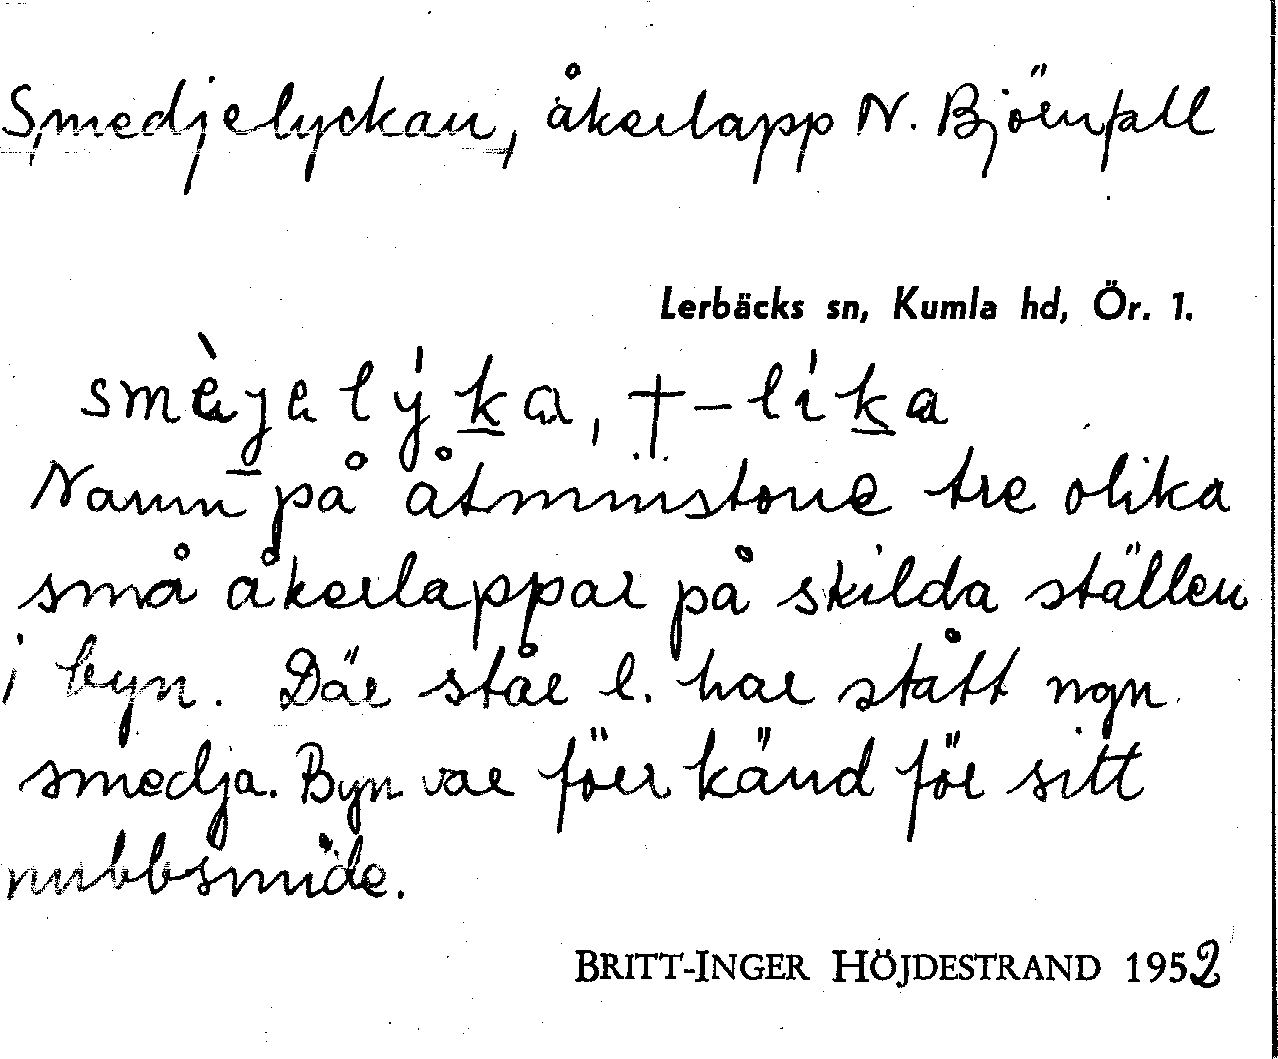 Smedjelyckan, åkerlapp N. Björnfall
Lerbäcks sn, Kumla hd, Ör. l.
smèjelýka, †-líka
Namn på åtminstone tre olika
små åkerlappar på skilda ställen
i byn. Där står l. har stått ngn
smedja. Byn var förr känd för sitt
nubbsmide.
BRITT-INGER HÖJDESTRAND 1952